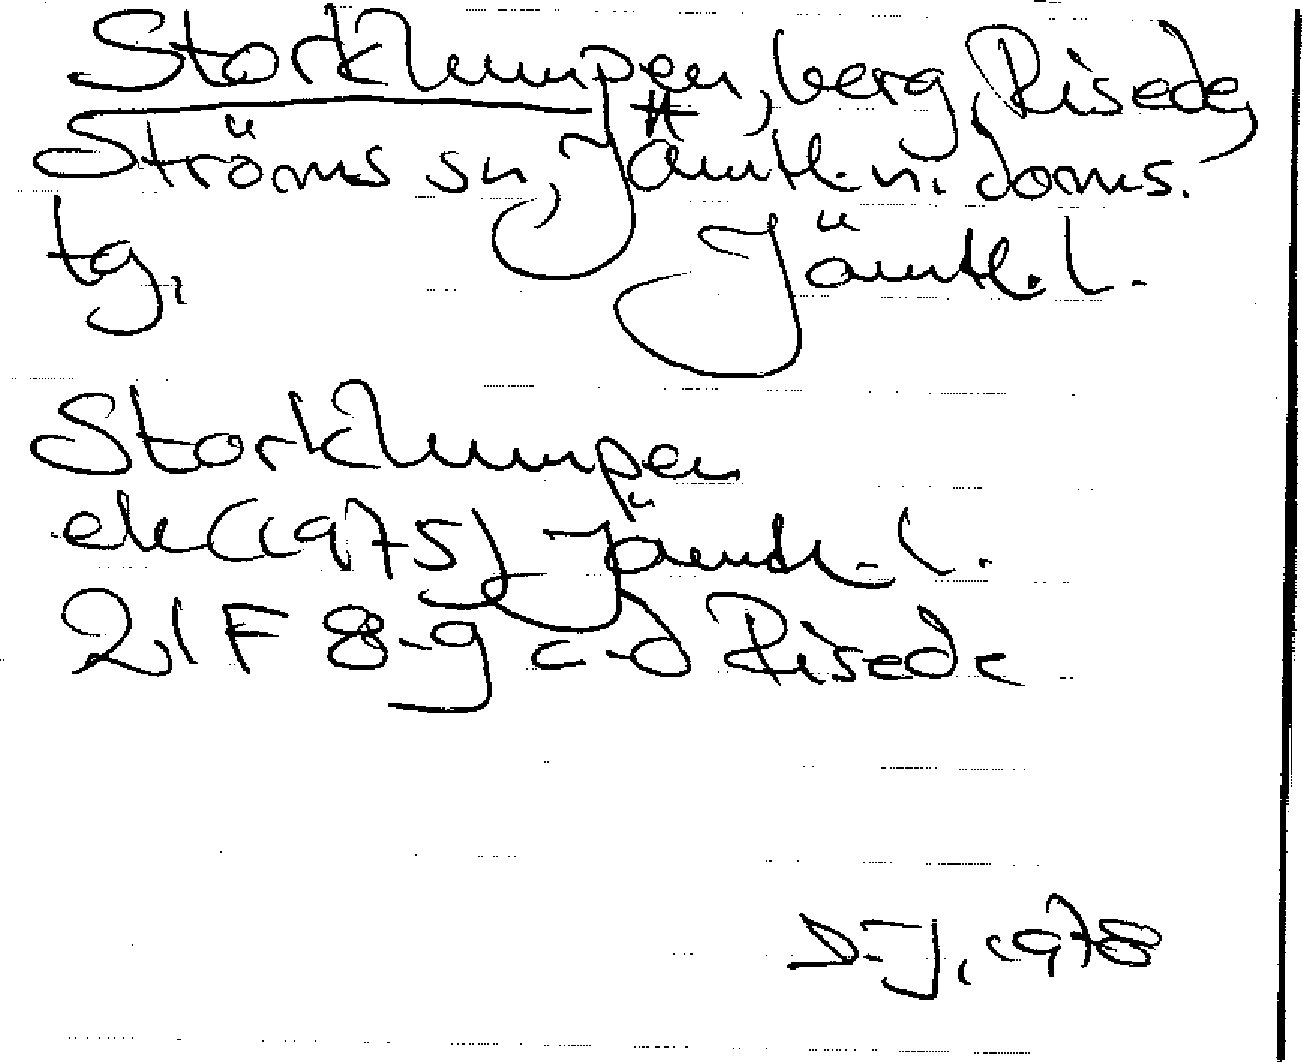 Storklumpen, berg, Risede,
Ströms sn, Jämtl. n. doms.
tg. Jämtl. l.
Storklumpen
ek (1975) Jämtl. l.
21F 8-9 c-d Risede
D-J, 1978